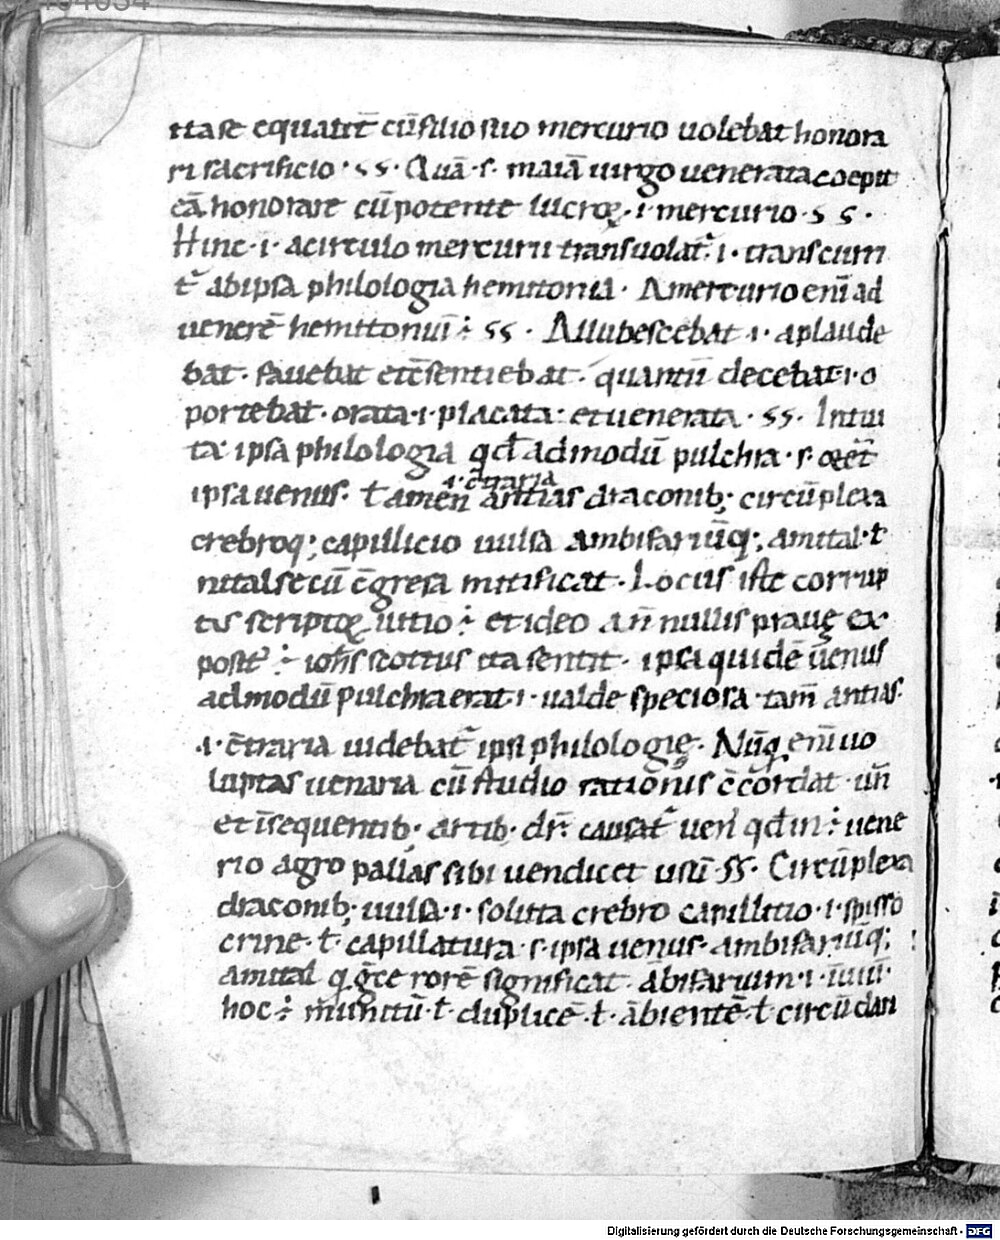 ita se equaret cū filio suo mercurio uolebat honora
ri sacrificio · ss · Quā · s · maiā uirgo uenerata coepit
eā honorare cū potente lucroꝝ · i · mercurio · s s ·
Hinc · i · a circulo mercurii transuolat᷑ · i · transcurri
t᷑ ab ipsa philologia hemitonia · A mercurio eni᷑ ad
uenerē hemitoniū ÷ ss · Allubescebat · i · aplaude
bat · fauebat et c̄sentiebat · quantū decebat · i · o
portebat · orata · i · placata · et uenerata · ss · Intui
ta ipsa philologia qđ admodū pulchra · s · eēt
· i · c̄traria
ipsa uenus · tamen antias draconib; circūplexa
crebroq; capillicio uulsa ambifariūq; amital · ł
nital secū c̄gressa mitificat · Locus iste corrup
tus scriptoꝝ uitio ÷ et ideo a ñ nullis praue ex
posit᷑ ÷ ioh̄s scottus ita sentit · ipsa quidē uenus
admodū pulchra erat · i · ualde speciosa · tam̄ antias ·
· i · c̄traria uidebat᷑ ipsi philologię · Nūq̄ eni᷑ uo
luptas uenaria cū studio rationis c̄cordat · uñ
et ī sequentib; artib; dr̄ · causat᷑ uen᷑ qđ in ÷ uene
rio agro pallas sibi uendicet usū · ss · Circūplexa
draconib; uulsa · i · solita crebro capillitio · i · spisso
crine · ł · capillatura · s · ipsa uenus · ambifariūq;
amital q̨ gc̄e rorē significat · abifarium · i ·
hoc ÷ munitū · ł · duplicē · ł · ābientē · ł circūdan
Digitalisierung gefördert durch die Deutsche Forschungsgemeinschaft - DFG